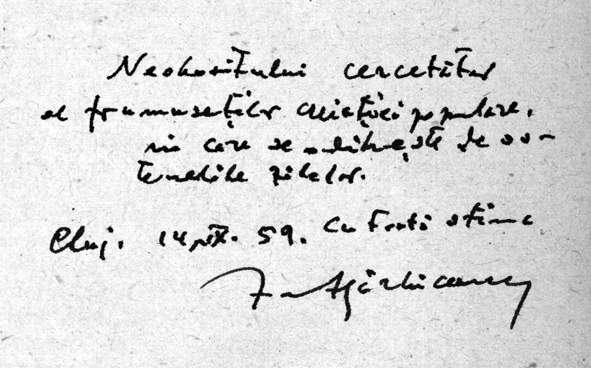 Neobositului cercetător
al frumuseților creației populare,
in care se odihnește de os-
tenelile zilelor.
Cluj. 14.IX. 59. Cu toată stima
I. Agârbiceanu